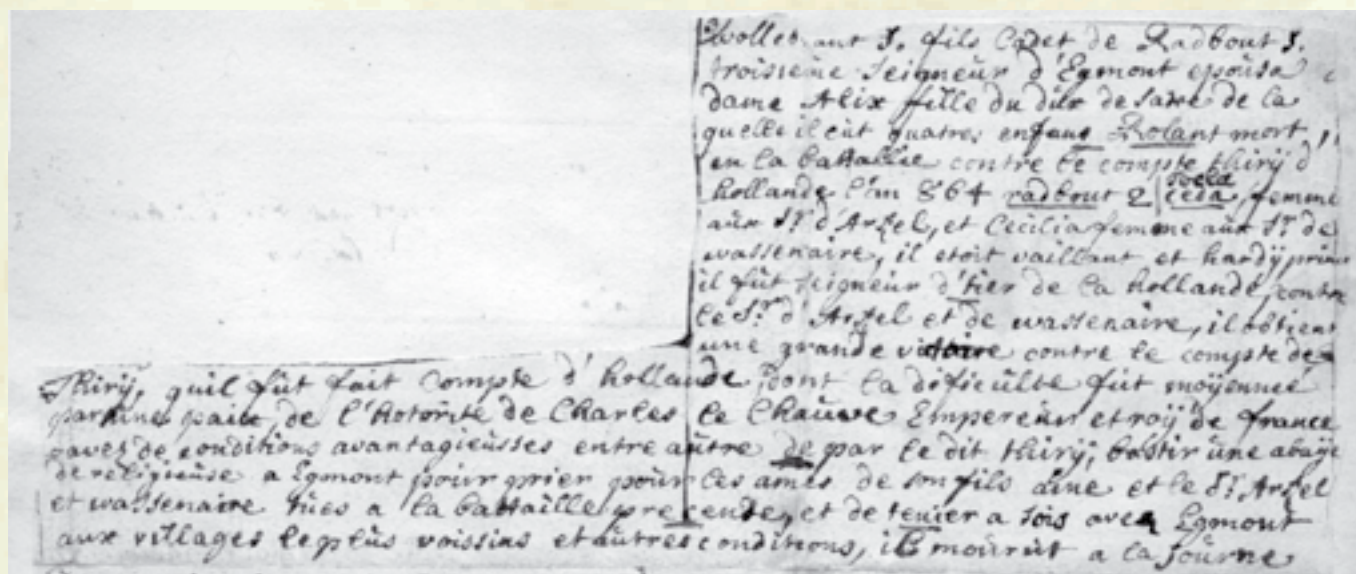 Wollebrant I. fils Cadet de Radbout I.
troisieme Seigneur d'Egmont epoùsa
dame Alix fille du dux de saxe de la
quelle il eùt quatres enfans Rolant mort
en la battallie contre le compte thirÿ d'
hollande l'an 864 radbout 2 ceda femme
aux Sr. d'Arkel, et Cecilia femme aùx Sr. de
wassenaire, il etoit vaillant et hardÿ
il fùt seigneùr d'tier de la hollande, contre
le Sr. d'Arkel et de wassenaire, il obtient
une grande victoire contre le compte de
Thirÿ, quil fùt fait Compte d'hollande, dont la dificùlte fùt moÿennee
par ùne paix, de l'hotorite de Charles le Chaùve Empereùr et roÿ de france
avez de conditions avantagieùsses entre aùtre de par le dit thirÿ, bastir ùne abaÿe
de religieùse a Egmont poùr prier poùr les ames de son fils aine et le Sr. Arkel
et wassenaire tùes a la battaille precende, et de tenier a sois avec Egmont
aux villages le plùs voissins et aùtres conditions, il moùrùt a la Joùrne